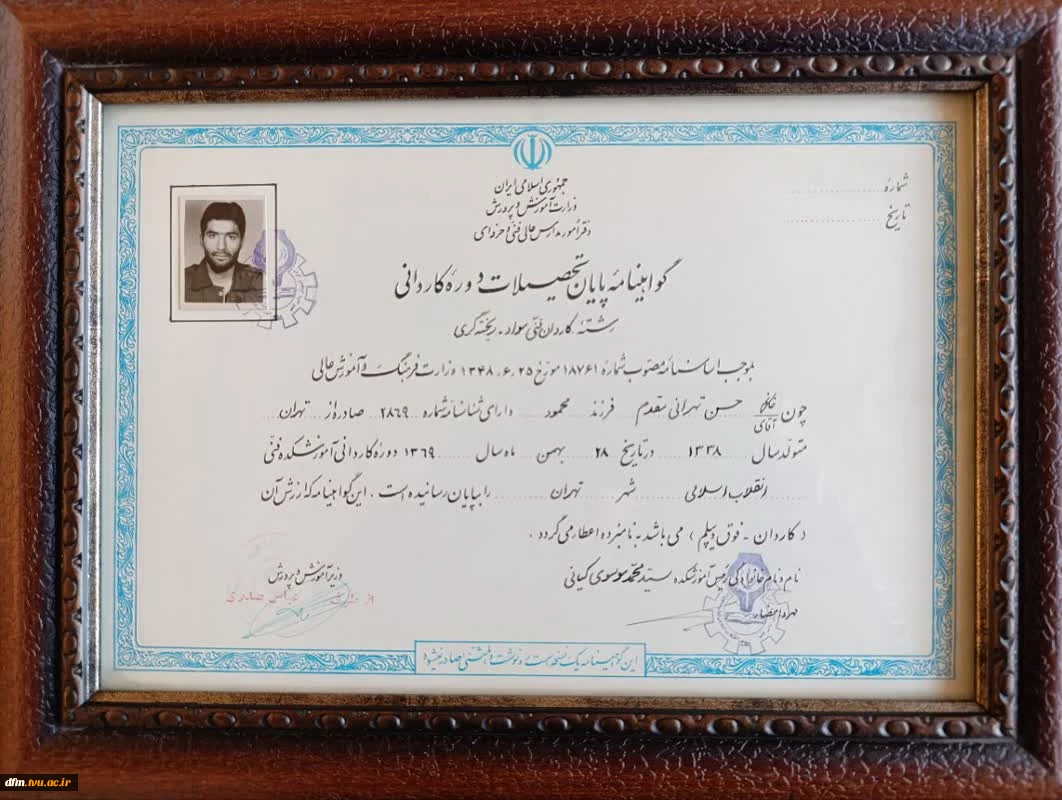 جمهوری اسلامی ایران
وزارت آموزش و پرورش
دفتر امور مدارس عالی فنی و حرفه‌ای
شماره
تاریخ
گواهینامه پایان تحصیلات دوره کاردانی
رشته کاردان فنی مواد - ریخته گری
بموجب اساسنامه مصوب شماره ۱۸۷۶۱ مورخ ۲۵-۶-۱۳۴۸ وزارت فرهنگ و آموزش عالی
چون خانم آقای حسن تهرانی مقدم فرزند محمود دارای شناسنامه شماره ۲۸۶۹ صادره از تهران
متولد سال ۱۳۳۸ در تاریخ ۲۸ بهمن ماه سال ۱۳۶۹ دوره کاردانی آموزشکده فنی
انقلاب اسلامی شهر تهران را بپایان رسانیده است . این گواهینامه که ارزش آن
( کاردان - فوق دیپلم ) می باشد به نامبرده اعطاء می گردد .
نام و نام خانوادگی رئیس آموزشکده سید محمد موسوی کیانی
مهر و امضاء
وزیر آموزش و پرورش
از طرف عباس صدری
این گواهینامه یک نسخه است و رونوشت یا المثنی صادر نمیشود
dfm.tvu.ac.ir